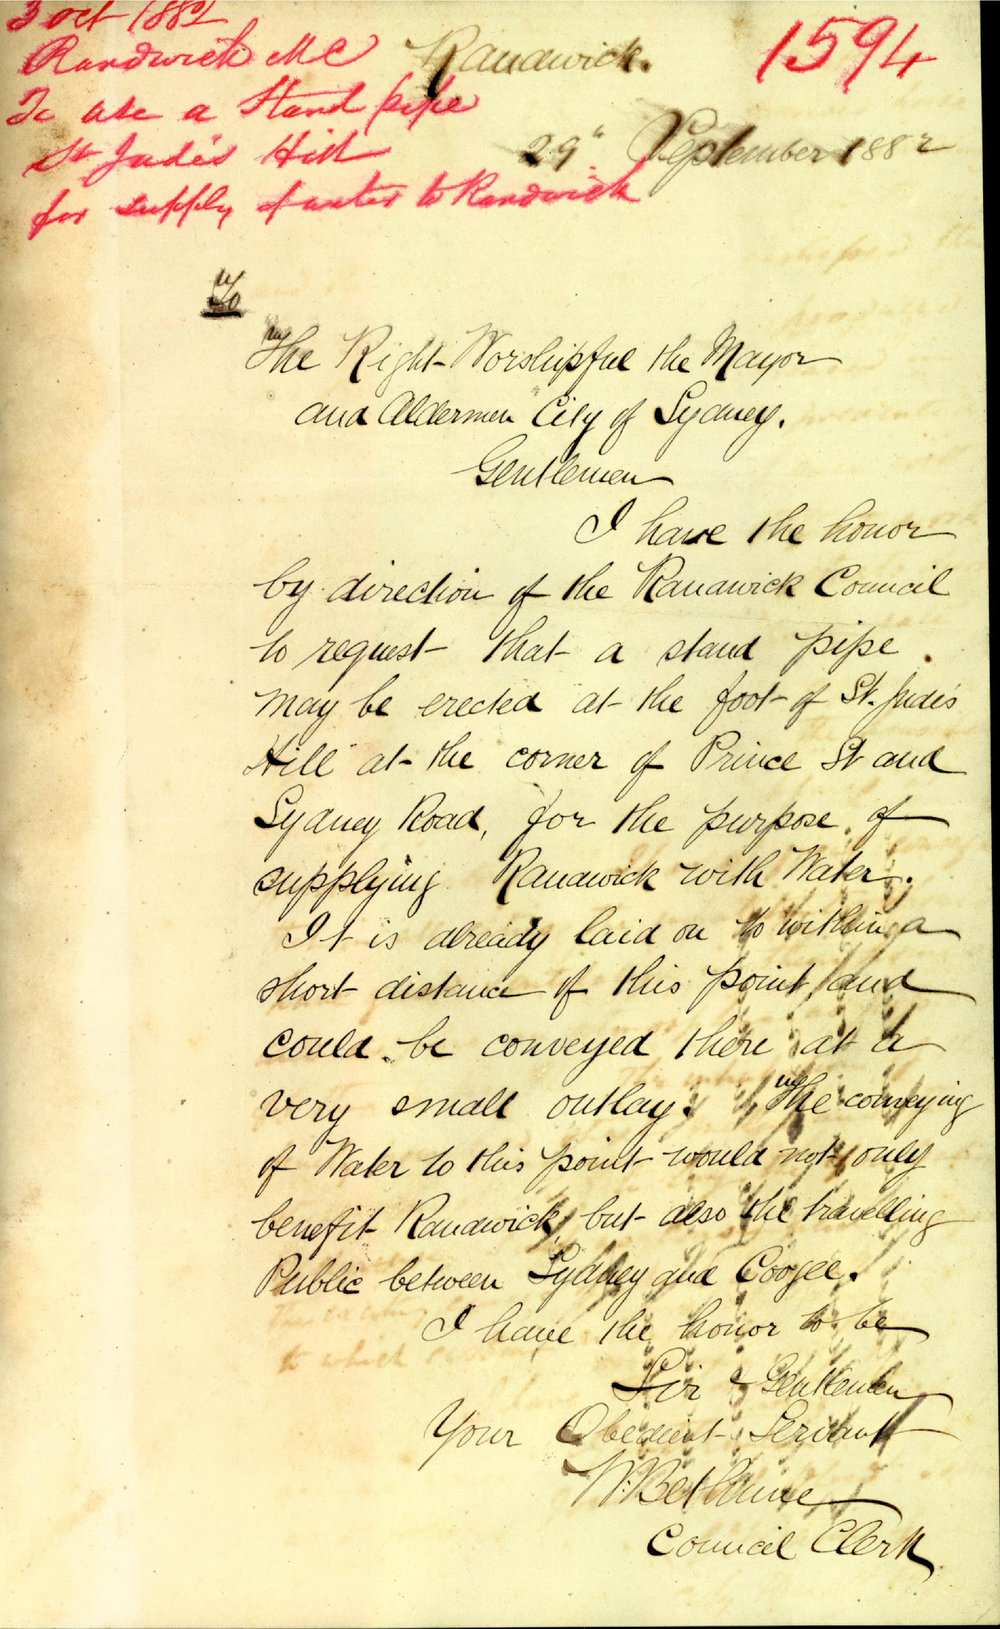 3 Oct 1882
Randwick MC
To use a Stand pipe
St Jude's Hill
for supply of water to Randwick
1594
Randwick.
29" September 1882
To
The Right Worshipful the Mayor
and Aldermen City of Sydney.
Gentlemen
I have the honor
by direction of the Randwick Council
to request that a stand pipe
may be erected at the foot of St. Jude's
Hill at the corner of Prince St and
Sydney Road, for the purpose of
supplying Randwick with Water.
It is already laid on to within a
short distance of this point, and
could be conveyed there at a
very small outlay. The conveying
of Water to this point would not only
benefit Randwick, but also the travelling
Public between Sydney and Coogee.
I have the honor to be
Sir & Gentlemen
Your Obedient Servant
W. Bethune
Council Clerk